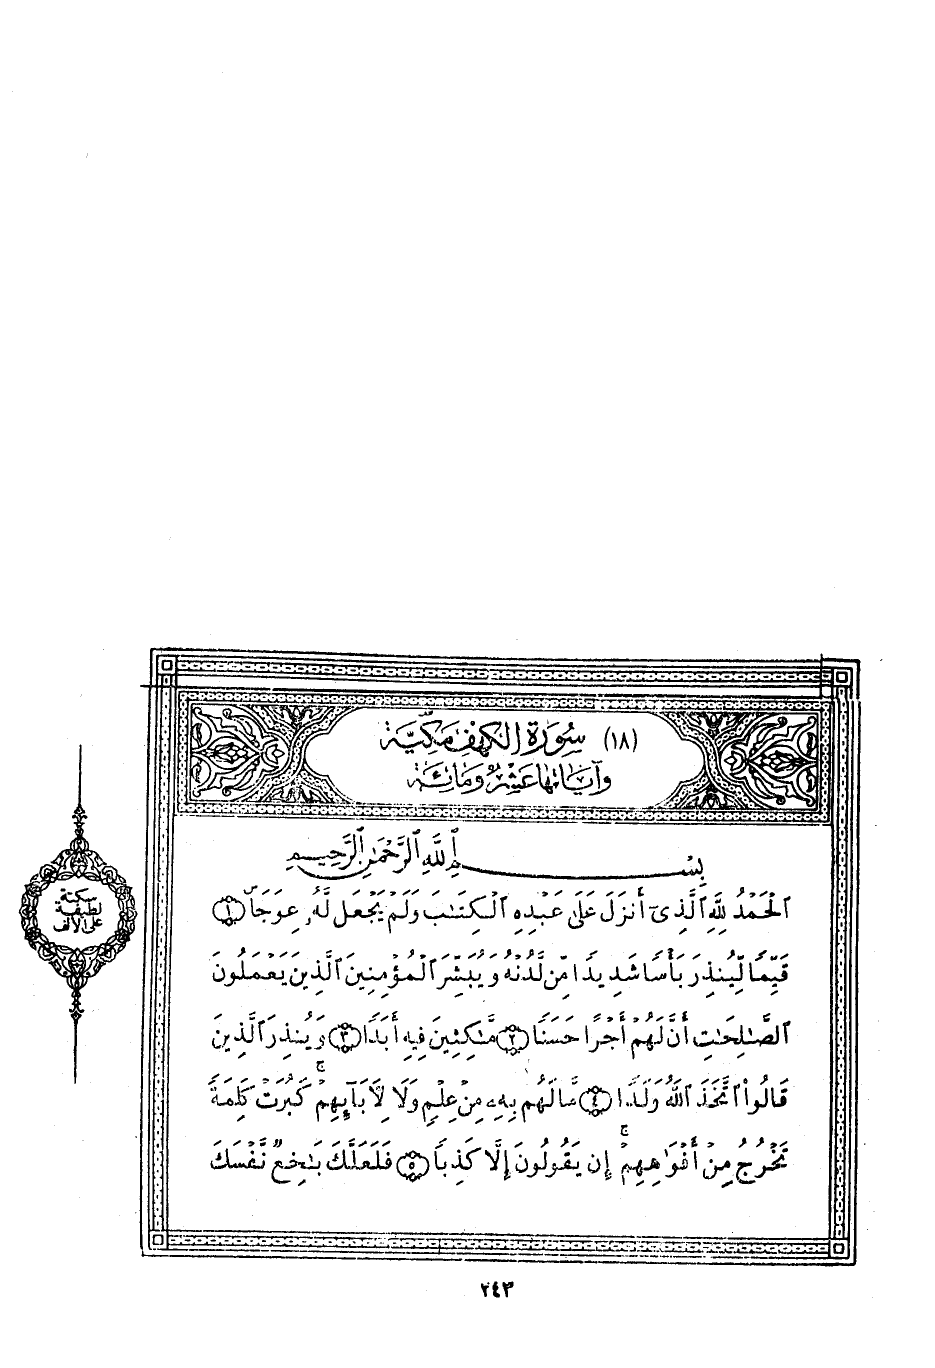 (١٨) سُورَةُ الكَهْفِ مَكِّيَّة
وَآيَاتُهَا عَشْرٌ وَمَائَة
بِسْمِ ٱللَّهِ ٱلرَّحْمَٰنِ ٱلرَّحِيمِ
ٱلْحَمْدُ لِلَّهِ ٱلَّذِىٓ أَنزَلَ عَلَىٰ عَبْدِهِ ٱلْكِتَٰبَ وَلَمْ يَجْعَل لَّهُۥ عِوَجَاۜ ١
قَيِّمًا لِّيُنذِرَ بَأْسًا شَدِيدًا مِّن لَّدُنْهُ وَيُبَشِّرَ ٱلْمُؤْمِنِينَ ٱلَّذِينَ يَعْمَلُونَ
ٱلصَّٰلِحَٰتِ أَنَّ لَهُمْ أَجْرًا حَسَنًا ٢ مَّٰكِثِينَ فِيهِ أَبَدًا ٣ وَيُنذِرَ ٱلَّذِينَ
قَالُوا۟ ٱتَّخَذَ ٱللَّهُ وَلَدًا ٤ مَّا لَهُم بِهِۦ مِنْ عِلْمٍ وَلَا لِـَٔابَآئِهِمْ ۚ كَبُرَتْ كَلِمَةً
تَخْرُجُ مِنْ أَفْوَٰهِهِمْ ۚ إِن يَقُولُونَ إِلَّا كَذِبًا ٥ فَلَعَلَّكَ بَٰخِعٌ نَّفْسَكَ
سكتة
لطيفة
على الألف
٢٤٣